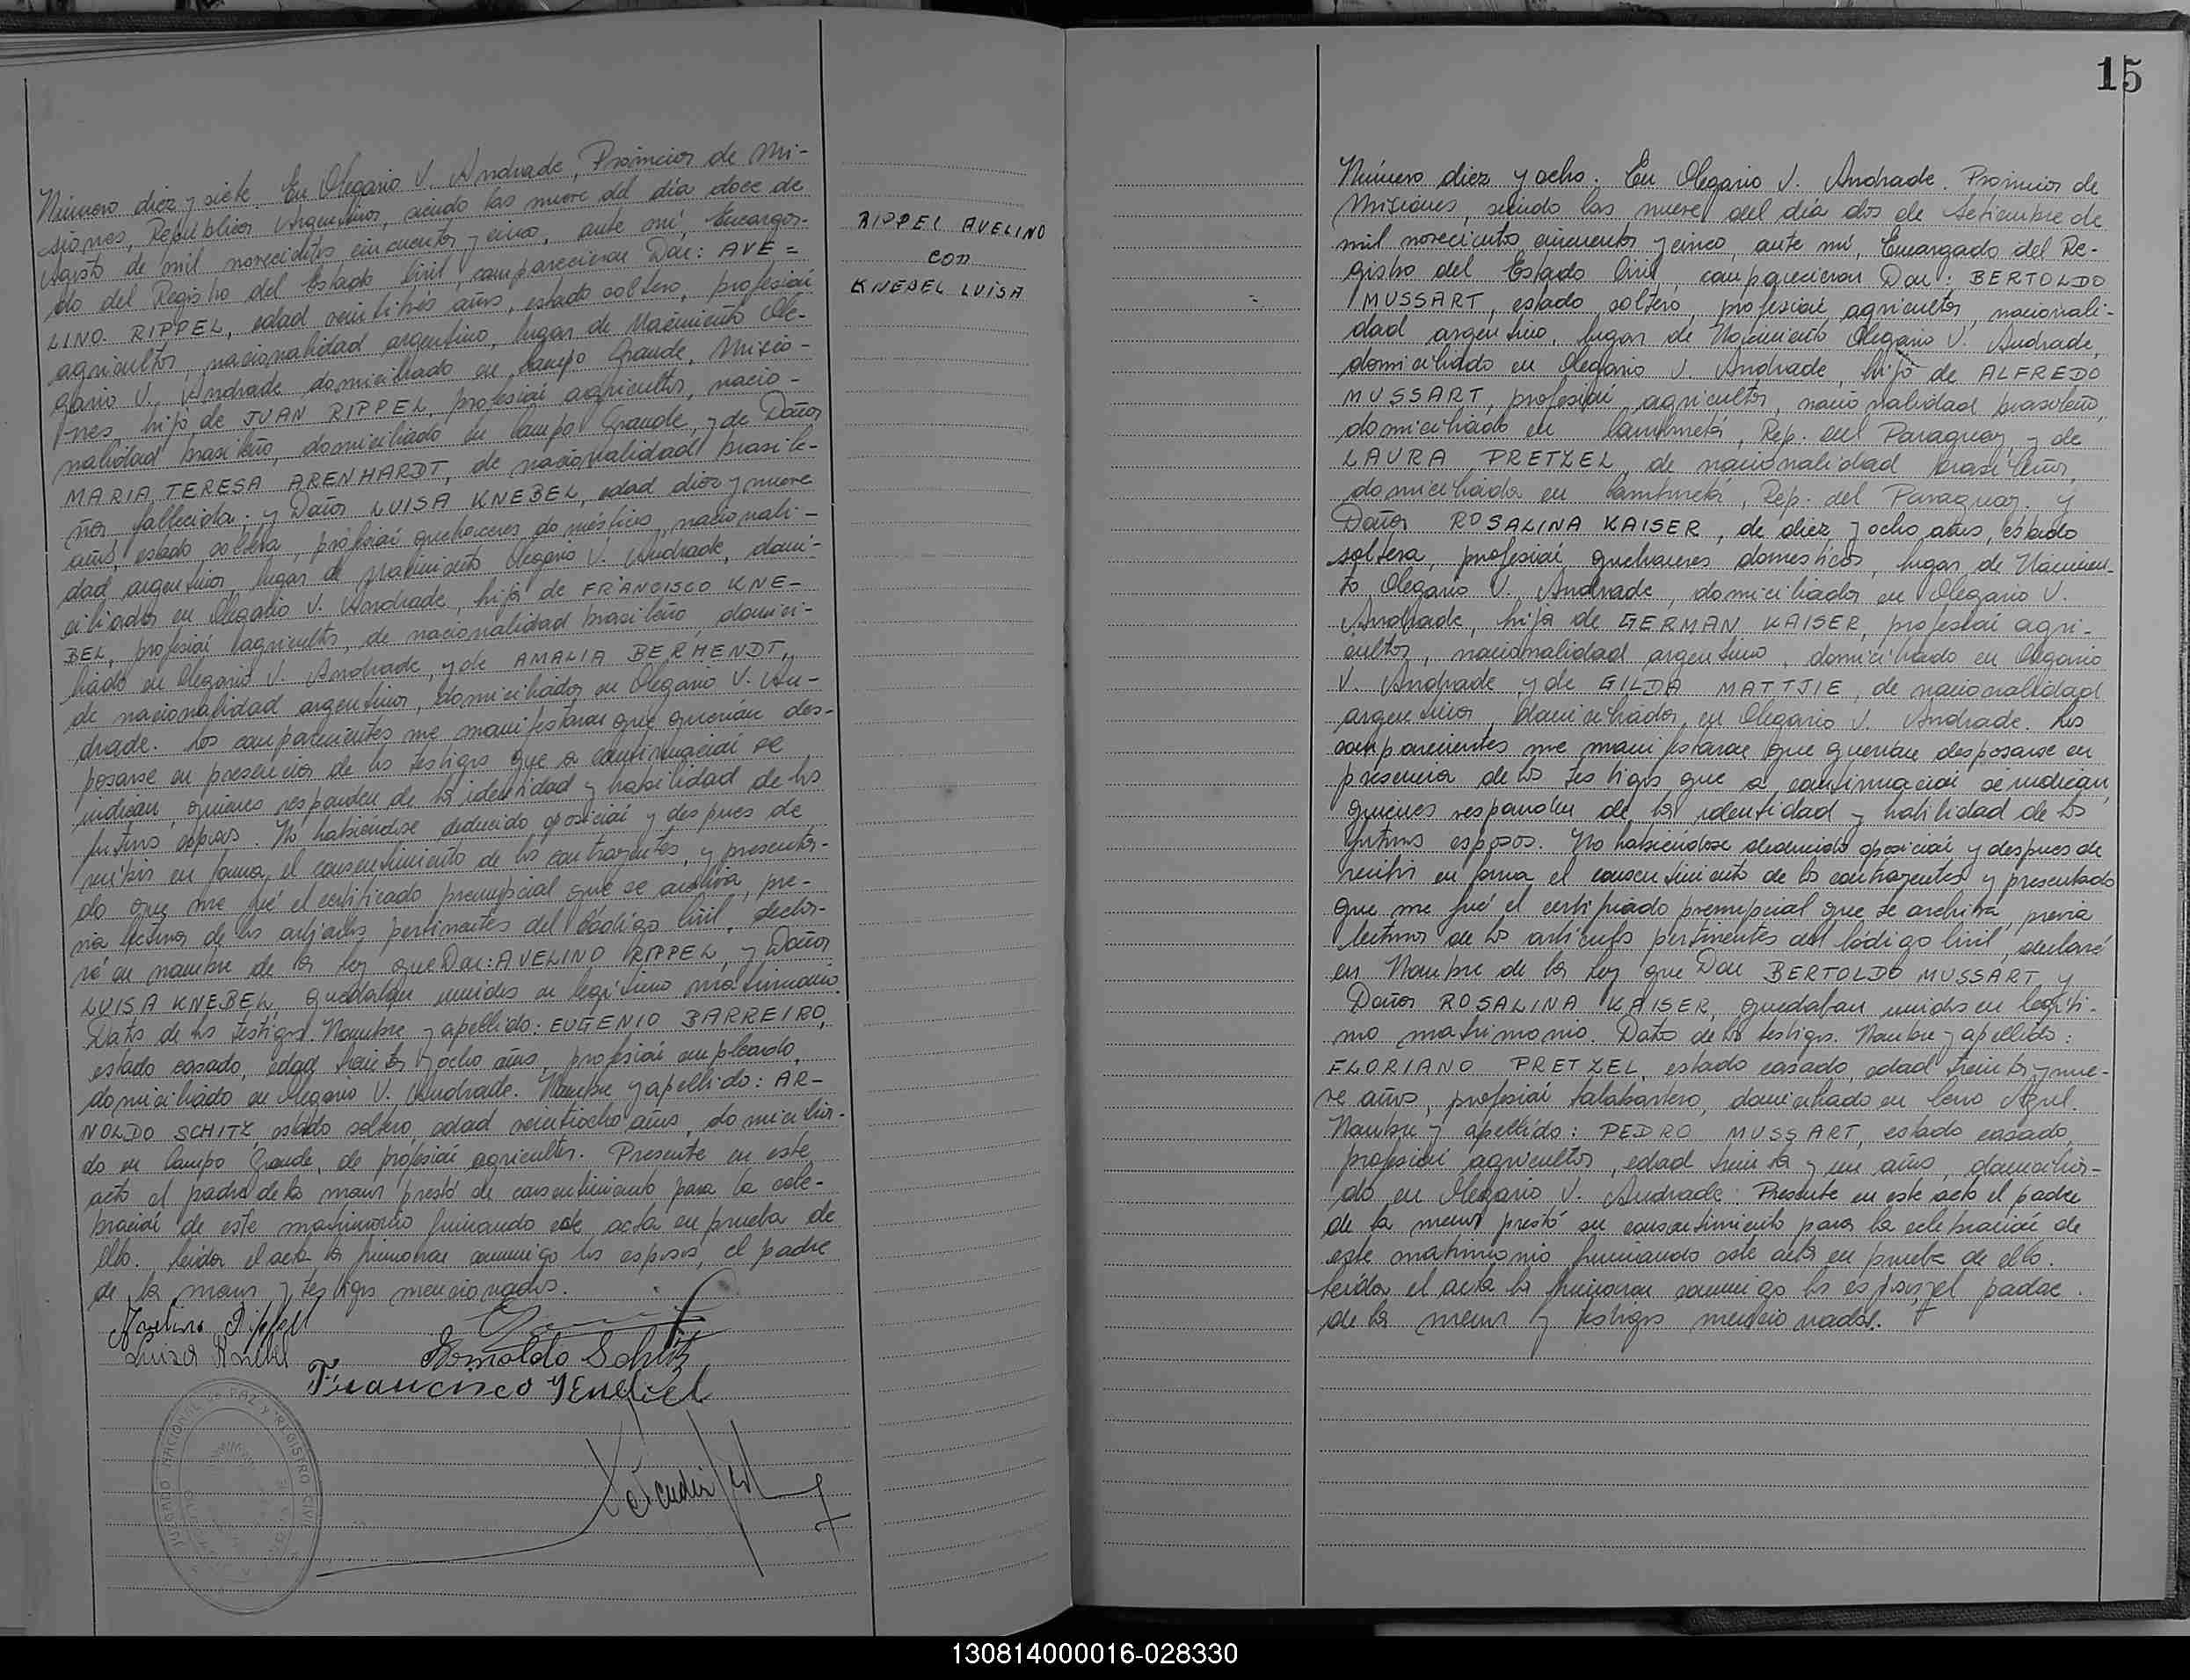 Número diez y siete. En Olegario V. Andrade, Provincia de Mi-
siones, República Argentina, siendo las nueve del día doce de
Agosto de mil novecientos cincuenta y cinco, ante mí, Encarga-
do del Registro del Estado Civil, comparecieron Don: AVE=
LINO RIPPEL, edad veintitrés años, estado soltero, profesión
agricultor, nacionalidad argentino, lugar de Nacimiento Ole-
gario V. Andrade domiciliado en Campo Grande, Misio-
nes hijo de JUAN RIPPEL, profesión agricultor, nacio-
nalidad brasileño, domiciliado en Campo Grande, y de Doña
MARIA TERESA ARENHARDT, de nacionalidad brasile-
ña fallecida; y Doña LUISA KNEBEL, edad diez y nueve
años, estado soltera, profesión quehaceres domésticos, nacionali-
dad argentina, lugar de nacimiento Olegario V. Andrade, domi-
ciliada en Olegario V. Andrade, hija de FRANCISCO KNE-
BEL, profesión agricultor, de nacionalidad brasileño domici-
liado en Olegario V. Andrade, y de AMALIA BERHENDT,
de nacionalidad argentina, domiciliada en Olegario V. An-
drade. Los comparecientes me manifestaron que querían des-
posarse en presencia de los testigos que a continuación se
indican, quienes responden de la identidad y habilidad de los
futuros esposos. No habiéndose deducido oposición y despues de
recibir en forma el consentimiento de los contrayentes, y presenta-
do que me fué el certificado prenupcial que se archiva, pre-
via lectura de los artículos pertinentes del Código Civil, decla-
ré en nombre de la ley que Don: AVELINO RIPPEL, y Doña
LUISA KNEBEL, quedaban unidos en legítimo matrimonio.
Datos de los testigos. Nombre y apellido: EUGENIO BARREIRO,
estado casado, edad treinta y ocho años, profesión empleado,
domiciliado en Olegario V. Andrade. Nombre y apellido: AR-
NOLDO SCHITZ, estado soltero, edad veintiocho años, domicilia-
do en Campo Grande, de profesión agricultor. Presente en este
acto el padre de la menor prestó de consentimiento para la cele-
bración de este matrimonio firmando este acta en prueba de
ello. Leída el acta la firmaron conmigo los esposos, el padre
de la menor y testigos mencionados.
Avelino Rippel
Luisa Knebel
Arnoldo Schitz
Francisco Knebel
JUZGADO NACIONAL DE PAZ Y REGISTRO CIVIL
RIPPEL AVELINO
con
KNEBEL LUISA
15
Número diez y ocho. En Olegario V. Andrade. Provincia de
Misiones, siendo las nueve del día dos de Setiembre de
mil novecientos cincuenta y cinco, ante mí, Encargado del Re-
gistro del Estado Civil, comparecieron Don: BERTOLDO
MUSSART, estado soltero, profesión agricultor, nacionali-
dad argentino, lugar de Nacimiento Olegario V. Andrade,
domiciliado en Olegario V. Andrade, hijo de ALFREDO
MUSSART, profesión agricultor, nacionalidad brasileño,
domiciliado en Cambyretá, Rep. del Paraguay y de
LAURA PRETZEL, de nacionalidad brasileña,
domiciliada en Cambyretá, Rep. del Paraguay. y
Doña ROSALINA KAISER, de diez y ocho años, estado
soltera, profesión quehaceres domesticos, lugar de Nacimien-
to Olegario V. Andrade, domiciliada en Olegario V.
Andrade, hija de GERMAN KAISER, profesión agri-
cultor, nacionalidad argentino, domiciliado en Olegario
V. Andrade y de GILDA MATTJIE, de nacionalidad
argentina, domiciliada, en Olegario V. Andrade. Los
comparecientes me manifestaron que querían desposarse en
presencia de los testigos que a continuación se indican,
quienes responden de la identidad y habilidad de los
futuros esposos. No habiéndose deducido oposición y despues de
recibir en forma el consentimiento de los contrayentes y presentado
que me fué el certificado prenupcial que se archiva, previa
lectura de los artículos pertinentes del Código Civil, declaré
en Nombre de la Ley que Don BERTOLDO MUSSART y
Doña ROSALINA KAISER, quedaban unidos en legíti-
mo matrimonio. Datos de los testigos. Nombre y apellido:
FLORIANO PRETZEL, estado casado, edad treinta y nue-
ve años, profesión talabartero, domiciliado en Cerro Azul.
Nombre y apellido: PEDRO MUSSART, estado casado,
profesión agricultor, edad treinta y un años, domicilia-
do en Olegario V. Andrade. Presente en este acto el padre
de la menor prestó su consentimiento para la celebración de
este matrimonio firmando este acta en prueba de ello.
Leída el acta la firmaron conmigo los esposos, el padre
de la menor y testigos mencionados.
130814000016-028330